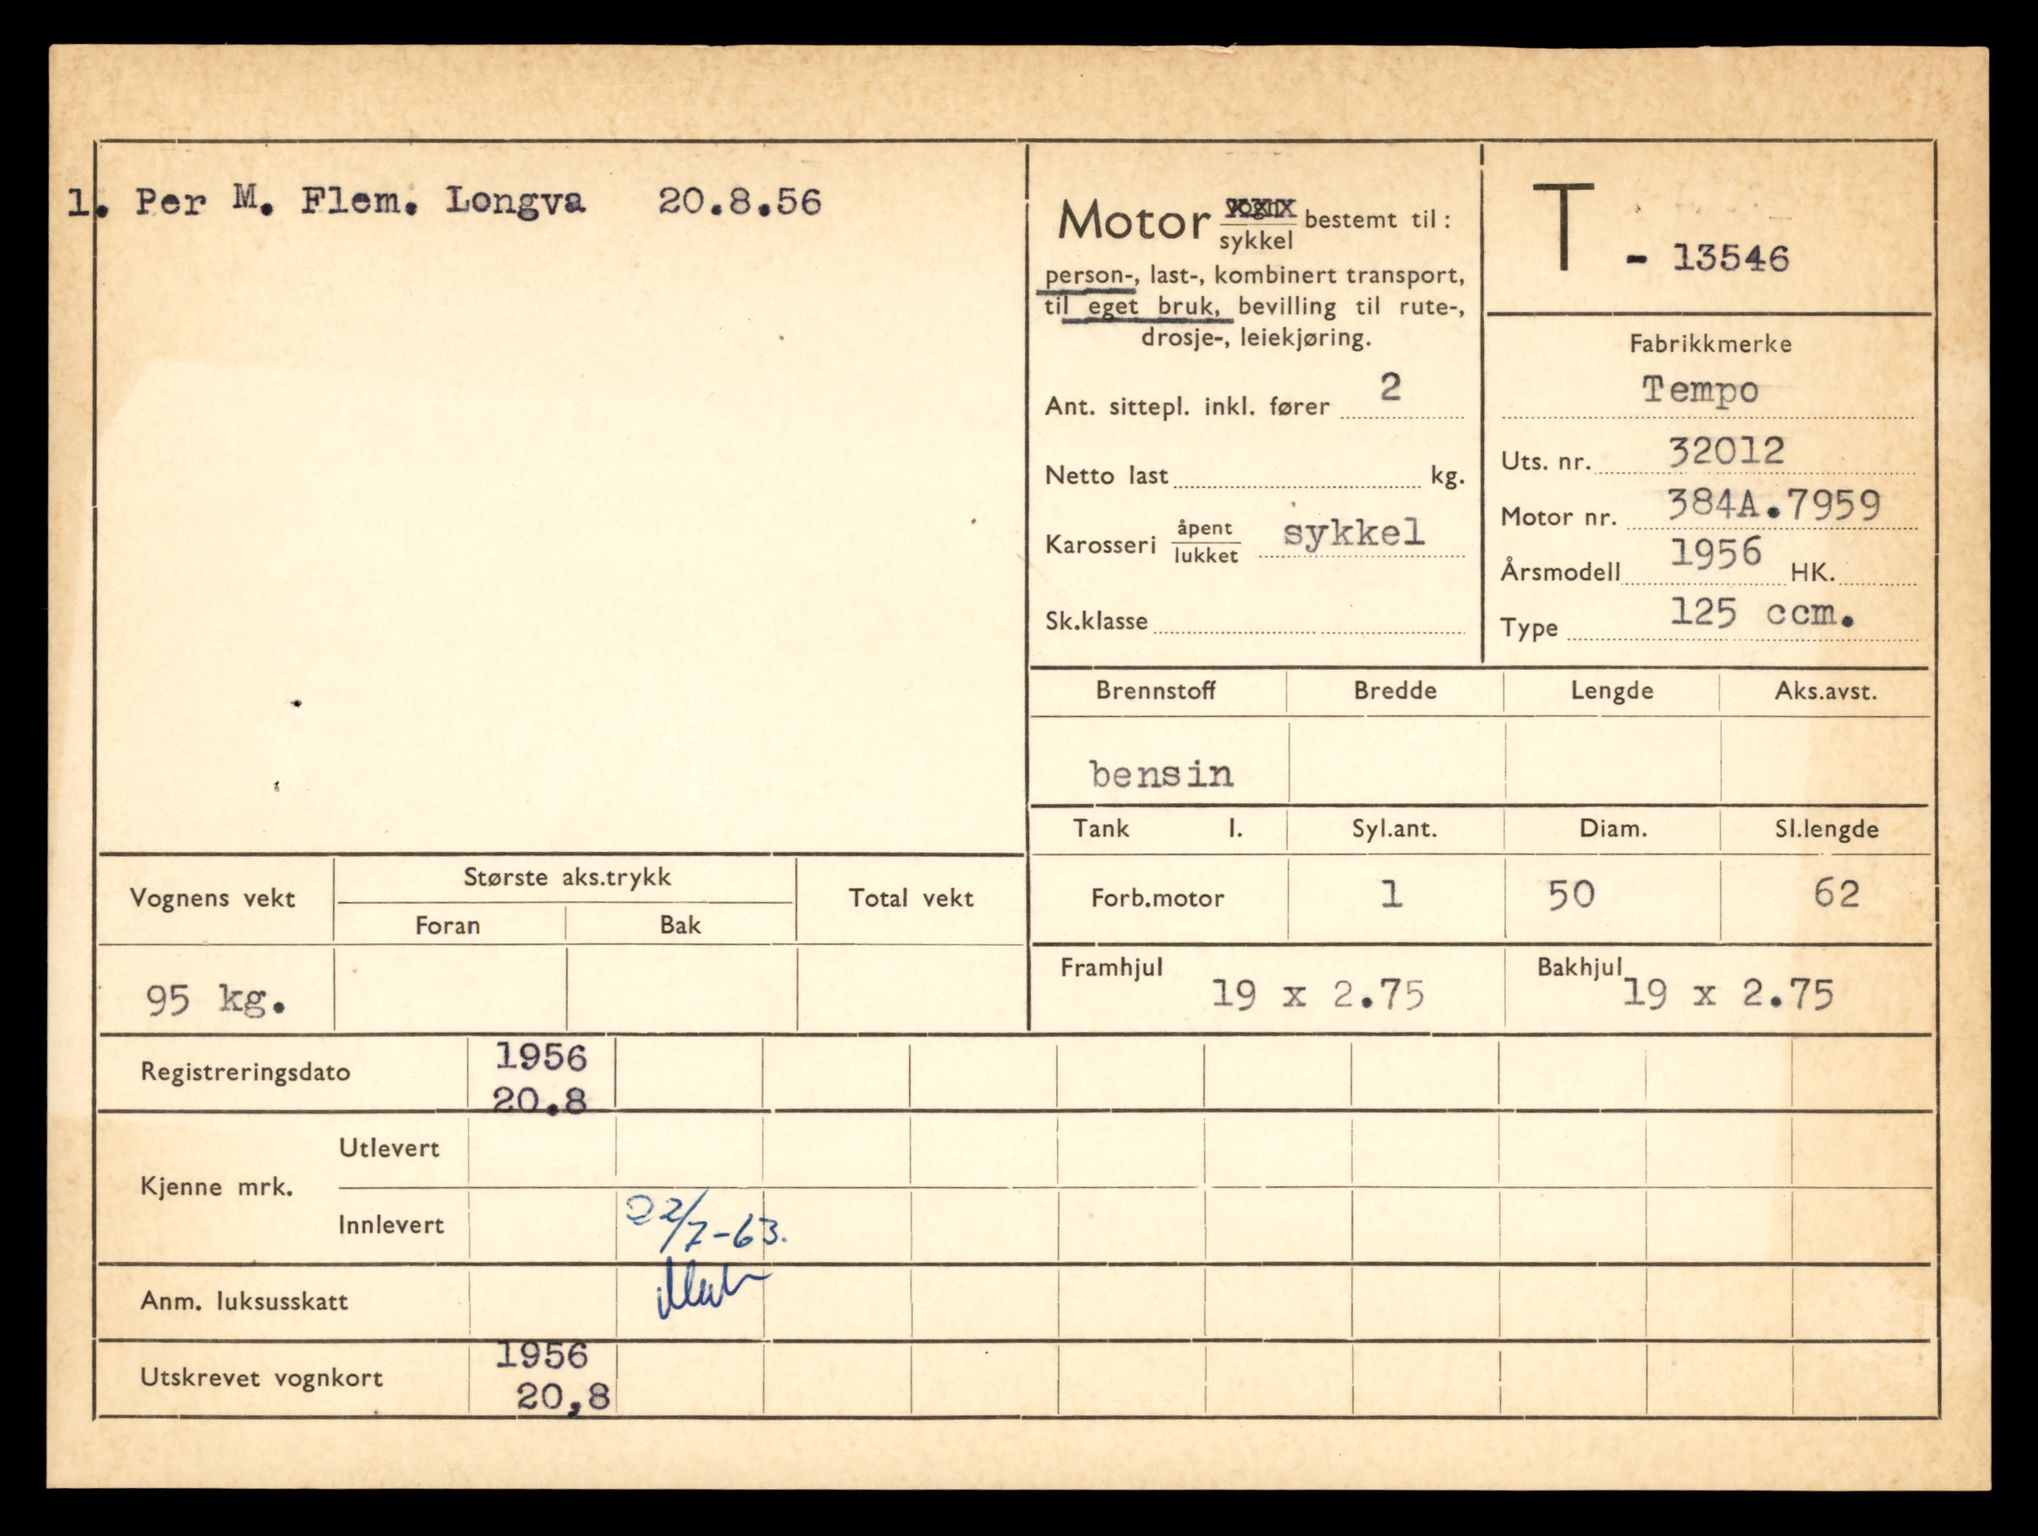 1. Per M. Flem. Longva 20.8.56
Motor vogn sykkel bestemt til:
person-, last-, kombinert transport,
til eget bruk, bevilling til rute-,
drosje-, leiekjøring.
Ant. sittepl. inkl. fører 2
Netto last kg.
Karosseri åpent lukket sykkel
Sk.klasse
T - 13546
Fabrikkmerke
Tempo
Uts. nr. 32012
Motor nr. 384A.7959
Årsmodell 1956 HK.
Type 125 ccm.
Brennstoff Bredde Lengde Aks.avst.
bensin
Tank l. Syl.ant. Diam. Sl.lengde
Forb.motor 1 50 62
Framhjul 19 x 2.75 Bakhjul 19 x 2.75
Vognens vekt Største aks.trykk Total vekt
Foran Bak
95 kg.
Registreringsdato 1956
20.8
Kjenne mrk. Utlevert
Innlevert 22/7-63.
Anm. luksusskatt
Utskrevet vognkort 1956
20,8